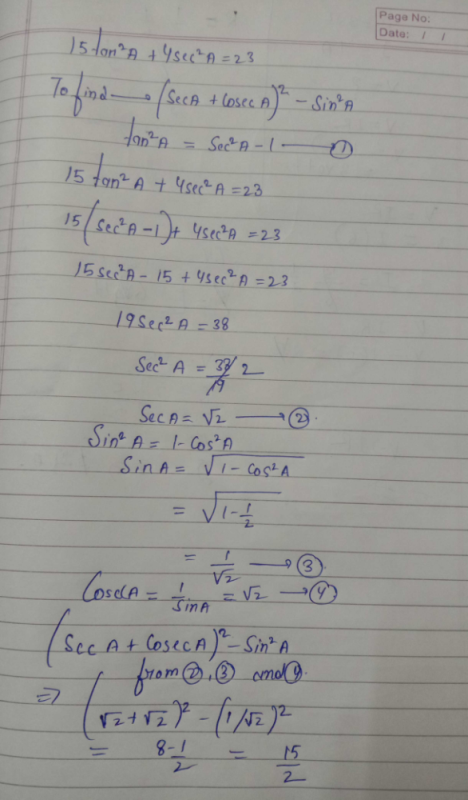 Page No:
Date: / /
15 tan²A + 4sec²A = 23
To find → (SecA + CosecA)² - Sin²A
tan²A = Sec²A - 1 → ①
15 tan²A + 4sec²A = 23
15(sec²A - 1) + 4sec²A = 23
15sec²A - 15 + 4sec²A = 23
19Sec²A = 38
Sec²A = 38/19 2
SecA = √2 → ②.
Sin²A = 1 - Cos²A
SinA = √(1 - Cos²A)
= √(1 - 1/2)
= 1/√2 → ③
CosecA = 1/SinA = √2 → ④.
(SecA + CosecA)² - Sin²A
from ②, ③ and ④.
⇒ (√2 + √2)² - (1/√2)²
= 8 - 1/2 = 15/2